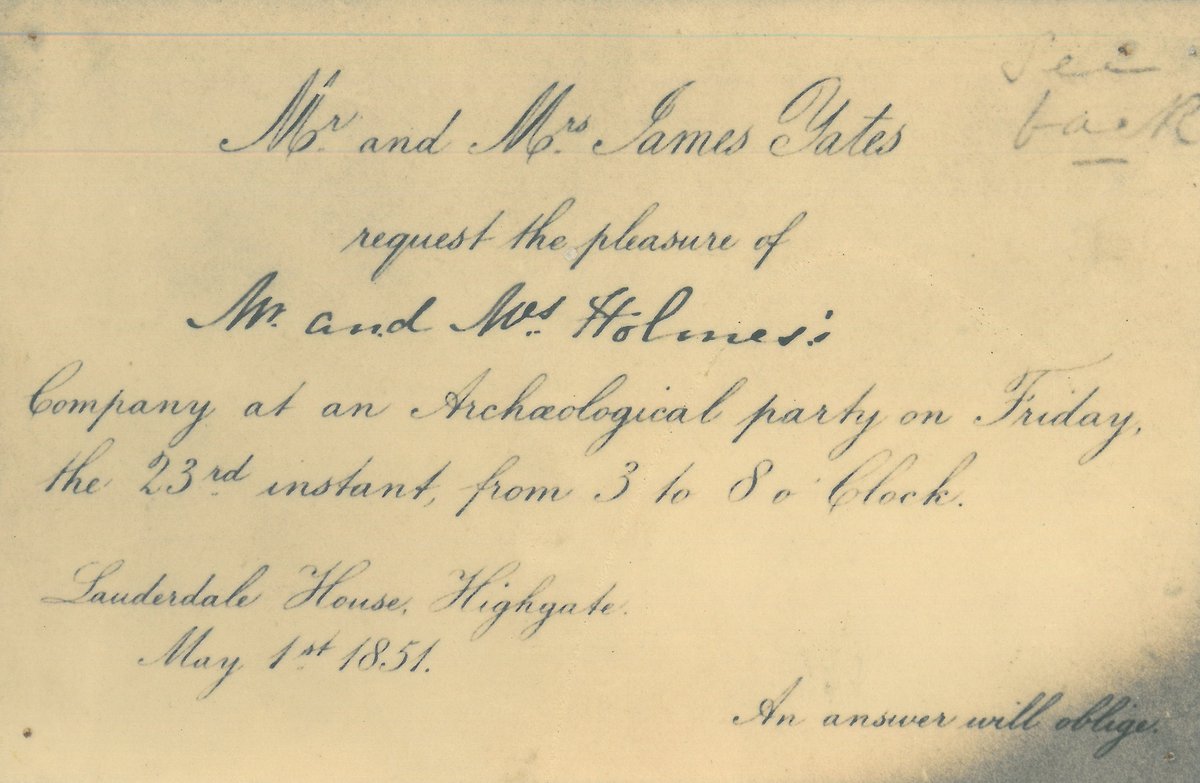 See
back
Mr. and Mrs. James Yates
request the pleasure of
Mr. and Mrs Holmes's
Company at an Archæological party on Friday,
the 23rd instant, from 3 to 8 o'Clock.
Lauderdale House, Highgate.
May 1st 1851.
An answer will oblige.